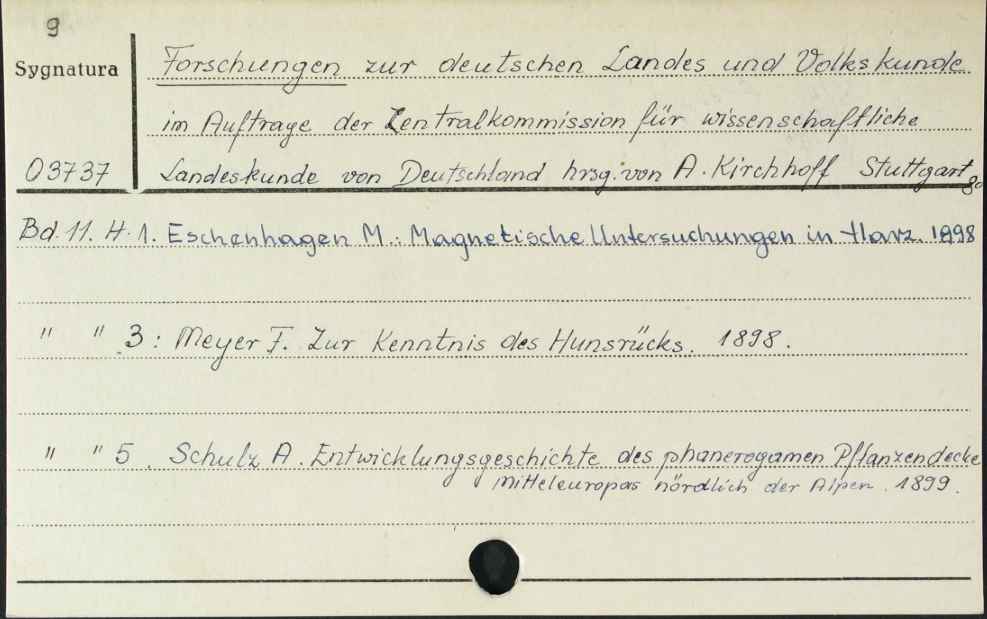 9
Sygnatura
Forschungen zur deutschen Landes und Volkskunde
im Auftrage der Zentralkommission für wissenschaftliche
03737 Landeskunde von Deutschland hrsg. von A. Kirchhoff Stuttgart 8°
Bd. 11. H. 1. Eschenhagen M.: Magnetische Untersuchungen in Harz. 1898
" " 3 : Meyer F. Zur Kenntnis des Hunsrücks. 1898.
" " 5. Schulz A. Entwicklungsgeschichte des phanerogamen Pflanzendecke
Mitteleuropas nördlich der Alpen. 1899.